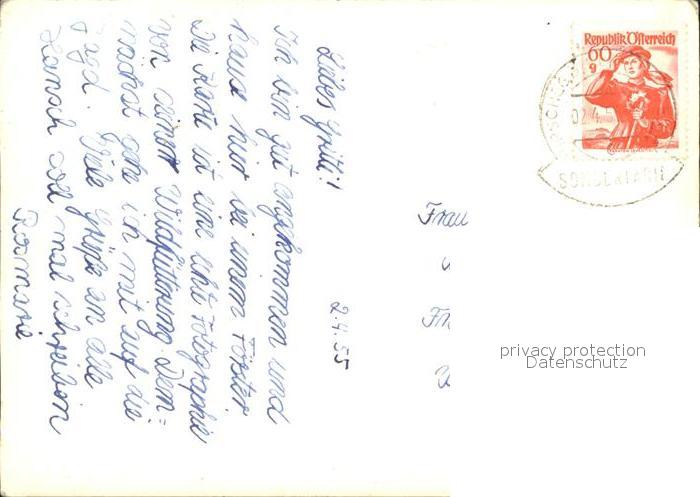 Liebes Gretli!
2.4.55
Ich bin gut angekommen und
hause hier bei einem Förster
Die Karte ist eine echte Fotographie
von einer Wildfütterung. Dem=
nächst gehe ich mit auf die
Jagd. Viele Grüße an alle
soll mal schreiben
Rosmarie
Frau
Republik Österreich
60
g
privacy protection
Datenschutz